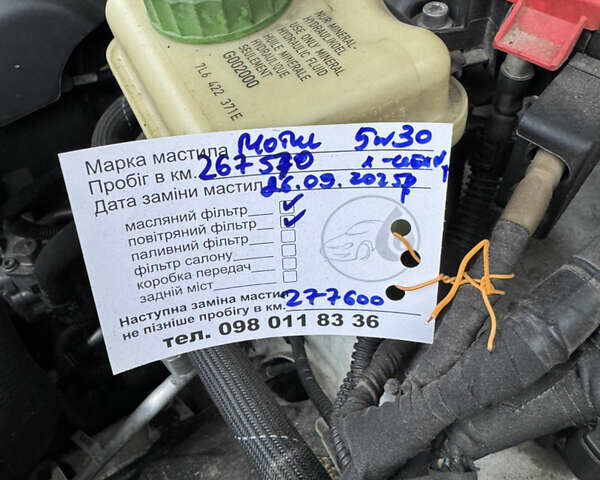 NUR MINERAL-
HYDRAULIKOEL
USE ONLY MINERAL
HYDRAULIC FLUID
HUILE MINERALE
HYDRAULIQUE
SEULEMENT
G002000
7L6 422 371E
Марка мастила Мотил 5w30
Пробіг в км. 267570
Дата заміни мастил 26.09.2025р
масляний фільтр
повітряний фільтр
паливний фільтр
фільтр салону
коробка передач
задній міст
Наступна заміна мастил 277600
не пізніше пробігу в км.
тел. 098 011 83 36